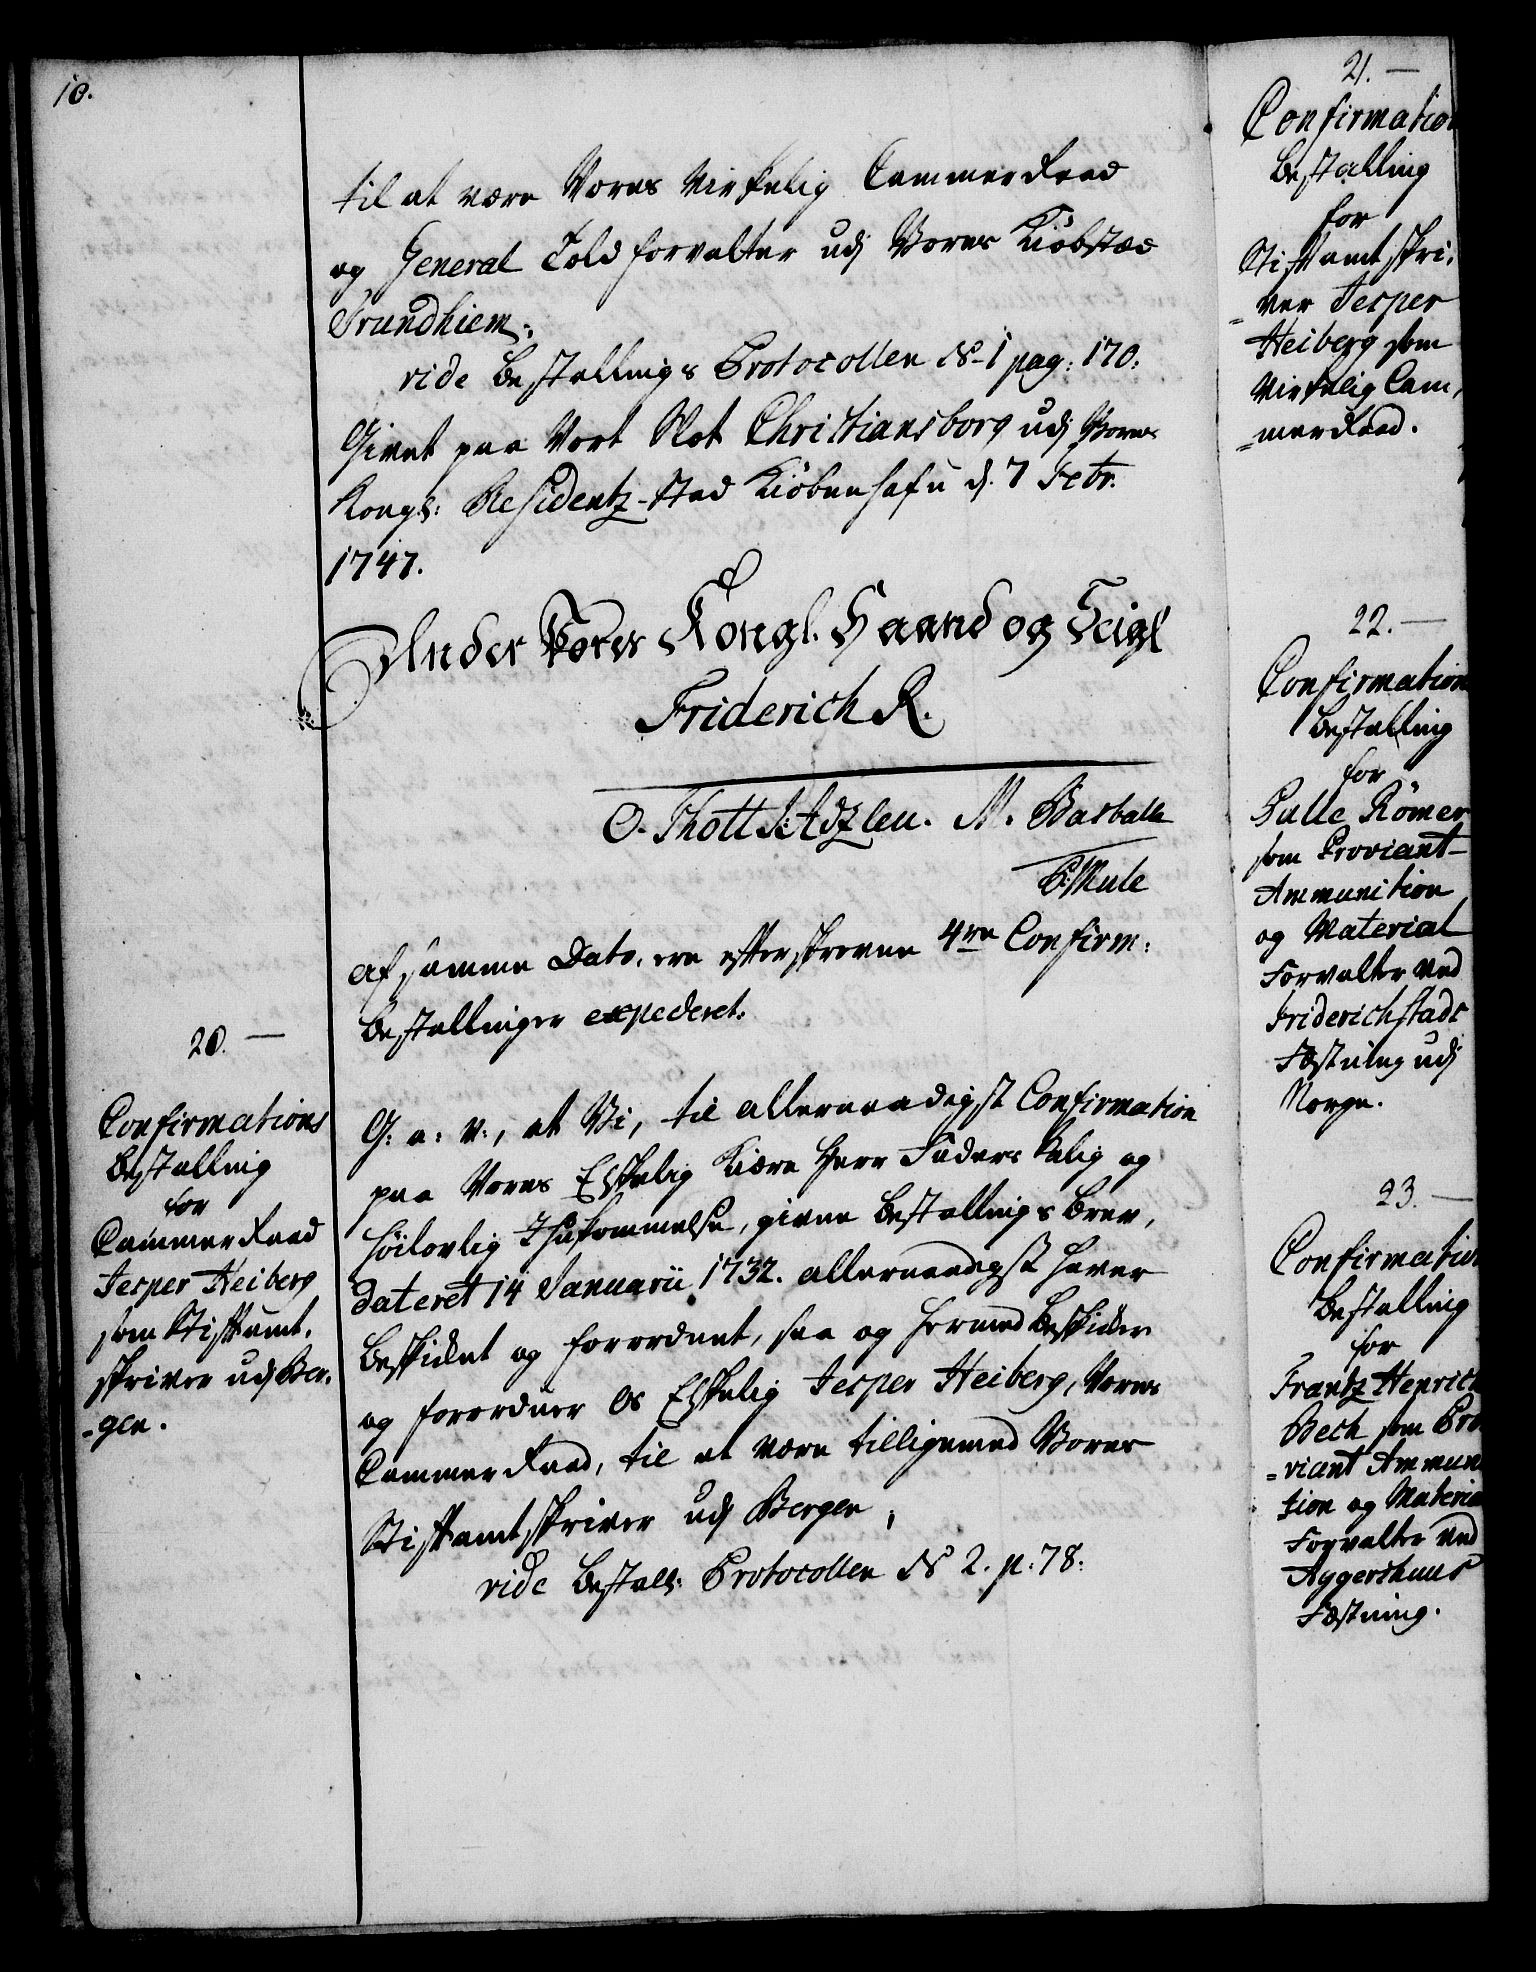 10.
til at være Vores Virkelig CammerRaad
og General Toldforvalter udj Vores Kiøbstæd
Trundhiem;
vide Bestallings Protocollen N 1 pag: 170:
Givet paa Vort Slot Christiansborg udj Vores
Kongl: Residentz-Stad Kiøbenhafn d. 7 Febr.
1747.
Under Vores Kongl. Haand og Seigl
Friderich R.
O. Thott Adzleu. M. Barballe
P. Mule
Af samme Dato, ere efterskrevne 4re Confirm:
Bestallinger expederet.
20. —
Confirmations
Bestalling
for
CammerRaad
Jesper Heiberg
som Stiftamt-
skriver udj Ber-
-gen.
G: a: V:, at Vi, til allernaadigst Confirmation
paa Vores Elskelig Kiære Herr Faders Salig og
Høilovlig Ihukommelse, givne Bestallings Brev,
dateret 14 Januarii 1732. allernaadigst haver
Beskikket og forordnet, saa og hermed Beskikker
og forordner Os Elskelig Jesper Heiberg, Vores
CammerRaad, til at være tilligemed Vores
Stiftamtskriver udj Bergen;
vide Bestall: Protocollen N 2. p: 78:
21. —
Confirmation
Bestalling
for
Stiftamtskri-
-ver Jesper
Heiberg som
Virkelig Cam-
-merRaad.
22. —
Confirmation
Bestalling
for
Palle Römer
som Proviant-
Ammunition
og Material
Forvalter ved
Friderichstads
Fæstning udj
Norge.
23. —
Confirmation
Bestalling
for
Frantz Henrich
Bech som Pro
-viant Ammuni
tion og Materia
Forvalter ved
Aggershuus
Fæstning.